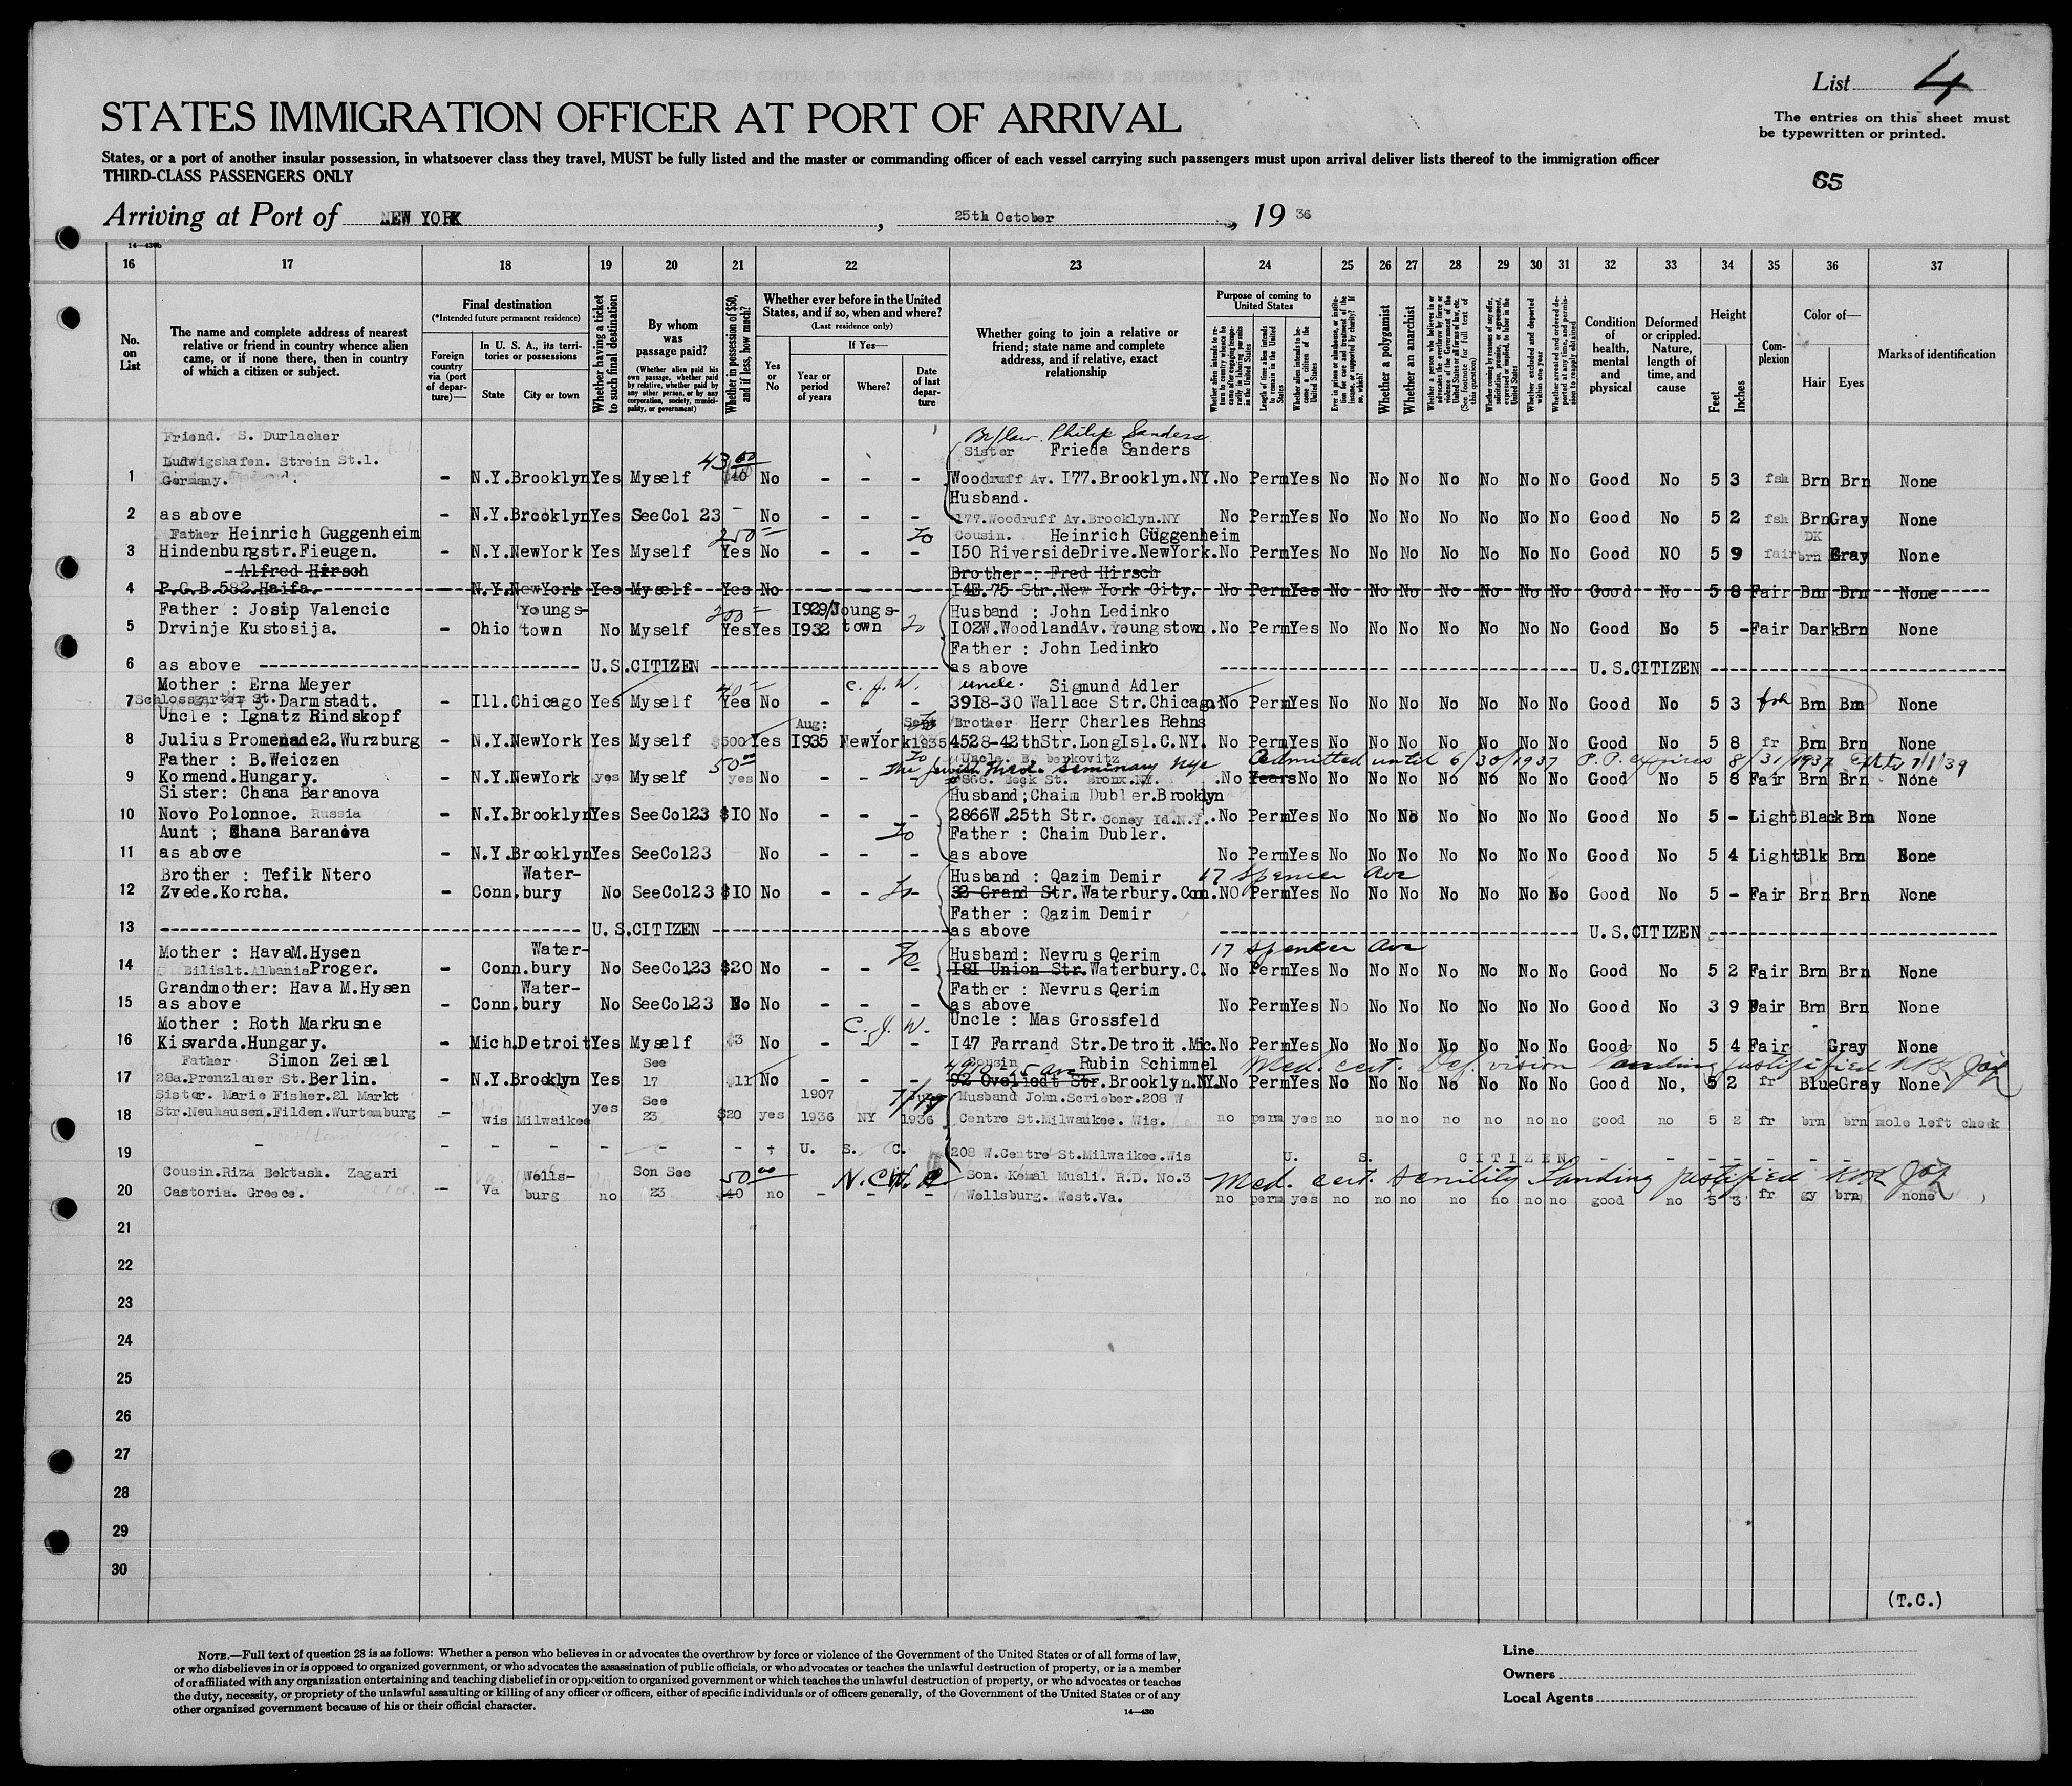 List 4
The entries on this sheet must
be typewritten or printed.
STATES IMMIGRATION OFFICER AT PORT OF ARRIVAL
States, or a port of another insular possession, in whatsoever class they travel, MUST be fully listed and the master or commanding officer of each vessel carrying such passengers must upon arrival deliver lists thereof to the immigration officer
THIRD-CLASS PASSENGERS ONLY
65
Arriving at Port of NEW YORK, 25th October, 19 36
16 17 18 19 20 21 22 23 24 25 26 27 28 29 30 31 32 33 34 35 36 37
No. on List
The name and complete address of nearest relative or friend in country whence alien came, or if none there, then in country of which a citizen or subject.
Final destination
(*Intended future permanent residence)
Foreign country via (port of departure)—
In U. S. A., its territories or possessions
State
City or town
Whether having a ticket to such final destination
By whom was passage paid?
(Whether alien paid his own passage, whether paid by relative, whether paid by any other person, or by any corporation, society, municipality, or government)
Whether in possession of $50, and if less, how much?
Whether ever before in the United States, and if so, when and where?
(Last residence only)
Yes or No
If Yes—
Year or period of years
Where?
Date of last departure
Whether going to join a relative or friend; state name and complete address, and if relative, exact relationship
Purpose of coming to United States
Length of time alien intends to remain in the United States
Whether alien intends to become a citizen of the United States
Whether a polygamist
Whether an anarchist
Condition of health, mental and physical
Deformed or crippled. Nature, length of time, and cause
Height
Feet
Inches
Complexion
Color of—
Hair
Eyes
Marks of identification
Friend. S. Durlacher Br/law. Philip Sanders
Ludwigshafen. Strein St.1. 43 00 Sister Frieda Sanders
1 Germany. - N.Y. Brooklyn Yes Myself $40 No - - - Woodruff Av. I77. Brooklyn.NY. No Perm Yes No No No No No No No Good No 5 3 fsh Brn Brn None
Husband.
2 as above - N.Y. Brooklyn Yes SeeCol 23 - No - - - 177.Woodruff Av.Brooklyn.NY No Perm Yes No No No No No No No Good No 5 2 fsh Brn Gray None
Father Heinrich Guggenheim 250 Cousin. Heinrich Guggenheim DK
3 Hindenburgstr.Fieugen. - N.Y. NewYork Yes Myself Yes No - - - I50 RiversideDrive.NewYork. No Perm Yes No No No No No No No Good NO 5 9 fair brn Gray None
Alfred Hirsch Brother : Fred Hirsch
4 P.C.B.582.Haifa. N.Y. NewYork Yes Myself Yes No I4E.75 Str.New York City. No Perm Yes No No No No No No No Good No 5 8 Fair Brn Brn None
Father : Josip Valencic Youngs- 200 I929/ Youngs- Husband : John Ledinko
5 Drvinje Kustosija. - Ohio town No Myself Yes Yes I932 town I02W.WoodlandAv.Youngstown. No Perm Yes No No No No No No No Good No 5 - Fair Dark Brn None
Father : John Ledinko
6 as above U.S.CITIZEN as above U.S.CITIZEN
Mother : Erna Meyer 40 C. J. W. uncle. Sigmund Adler
7 Schlossgarter St. Darmstadt. - Ill. Chicago Yes Myself Yes No - - - 39I8-30 Wallace Str.Chicago. No Perm Yes No No No No No No No Good No 5 3 fsh Brn Brn None
Uncle : Ignatz Rindskopf Aug: Sept Brother Herr Charles Rehns
8 Julius Promenade2.Wurzburg - N.Y. NewYork Yes Myself $500 Yes I935 NewYork 1935 4528-42thStr.LongIsl.C.NY. No Perm Yes No No No No No No No Good No 5 8 fr Brn Brn None
Father : B.Weiczen 50 00 Uncle. B. berkovitz Admitted until 6/30/1937 P.P. expires 8/31/1937 Ext to 7/1/39
The Jewish Theo. Seminary NYC
9 Kormend.Hungary. - N.Y. NewYork yes Myself yes No - - - Beck St. Bronx.NY. No Years No No No No No No No No Good No 5 8 Fair Brn Brn None
Sister: Chana Baranova Husband;Chaim Dubler.Brooklyn
10 Novo Polonnoe. Russia - N.Y. Brooklyn Yes SeeCol23 $I0 No - - - 2866W.25th Str. Coney Id.N.Y. No Perm Yes No No No No No No No Good No 5 - Light Black Brn None
Aunt ; Chana Baranova Father : Chaim Dubler.
11 as above - N.Y. Brooklyn Yes SeeCol23 No - - - as above No Perm Yes No No No No No No No Good No 5 4 Light Blk Brn None
Brother : Tefik Ntero Water- Husband : Qazim Demir 17 Spencer Ave
12 Zvede.Korcha. - Conn. bury No SeeCol23 $I0 No - - - 32 Grand Str.Waterbury.Con. NO Perm Yes No No No No No No No Good No 5 - Fair Brn Brn None
Father : Qazim Demir
13 U.S.CITIZEN as above U.S.CITIZEN
Mother : HavaM.Hysen Water- Husband: Nevrus Qerim 17 Spencer Ave
14 Bilislt.Albania Proger. - Conn. bury No SeeCol23 $20 No - - - I8I Union Str.Waterbury.C. No Perm Yes No No No No No No No Good No 5 2 Fair Brn Brn None
Grandmother: Hava M.Hysen Water- Father : Nevrus Qerim
15 as above - Conn. bury No SeeCol23 No No - - - as above No Perm Yes No No No No No No No Good No 3 9 Fair Brn Brn None
Mother : Roth Markusne C. J. W. Uncle : Mas Grossfeld
16 Kisvarda.Hungary. - Mich. Detroit Yes Myself $3 No - - - I47 Farrand Str.Detroit.Mic. No Perm Yes No No No No No No No Good No 5 4 Fair Gray None
Father Simon Zeisel See Cousin Rubin Schimmel Med. cert. Def. vision Landing justified
17 28a.Prenzlauer St.Berlin. - N.Y. Brooklyn Yes 17 $11 No - - - 92 Overlledt Str.Brooklyn.NY. No Perm Yes No No No No No No No Good No, 5 2 fr Blue Gray None
Sister. Marie Fisher.21 Markt See 1907 June Husband John.Scrieber.208 W
18 Str.Neuhausen.Filden.Wurtemburg - wis Milwaikee yes 23 $20 yes 1936 NY 1936 Centre St.Milwaukee. Wis. no perm yes no no no no no no no good no 5 2 fr brn brn mole left cheek
19 - - - - - - - U. S. C. 208 W.Centre St.Milwaikee.Wis U. S. CITIZEN - - - - - -
Cousin.Riza Bektash. Zagari Wells- Son See 50 00 Son. Kemal Musli. R.D. No.3 Med. cert. Senility Landing justified
20 Castoria. Greece. - Va burg no 23 $40 no - - - Wellsburg. West.Va. no perm yes no no no no no no no good no 5 3 fr gy brn none
21
22
23
24
25
26
27
28
29
30
(T.C.)
NOTE.—Full text of question 28 is as follows: Whether a person who believes in or advocates the overthrow by force or violence of the Government of the United States or of all forms of law,
or who disbelieves in or is opposed to organized government, or who advocates the assassination of public officials, or who advocates or teaches the unlawful destruction of property, or is a member
of or affiliated with any organization entertaining and teaching disbelief in or opposition to organized government or which teaches the unlawful destruction of property, or who advocates or teaches
the duty, necessity, or propriety of the unlawful assaulting or killing of any officer or officers, either of specific individuals or of officers generally, of the Government of the United States or of any
other organized government because of his or their official character.
14—430
Line
Owners
Local Agents